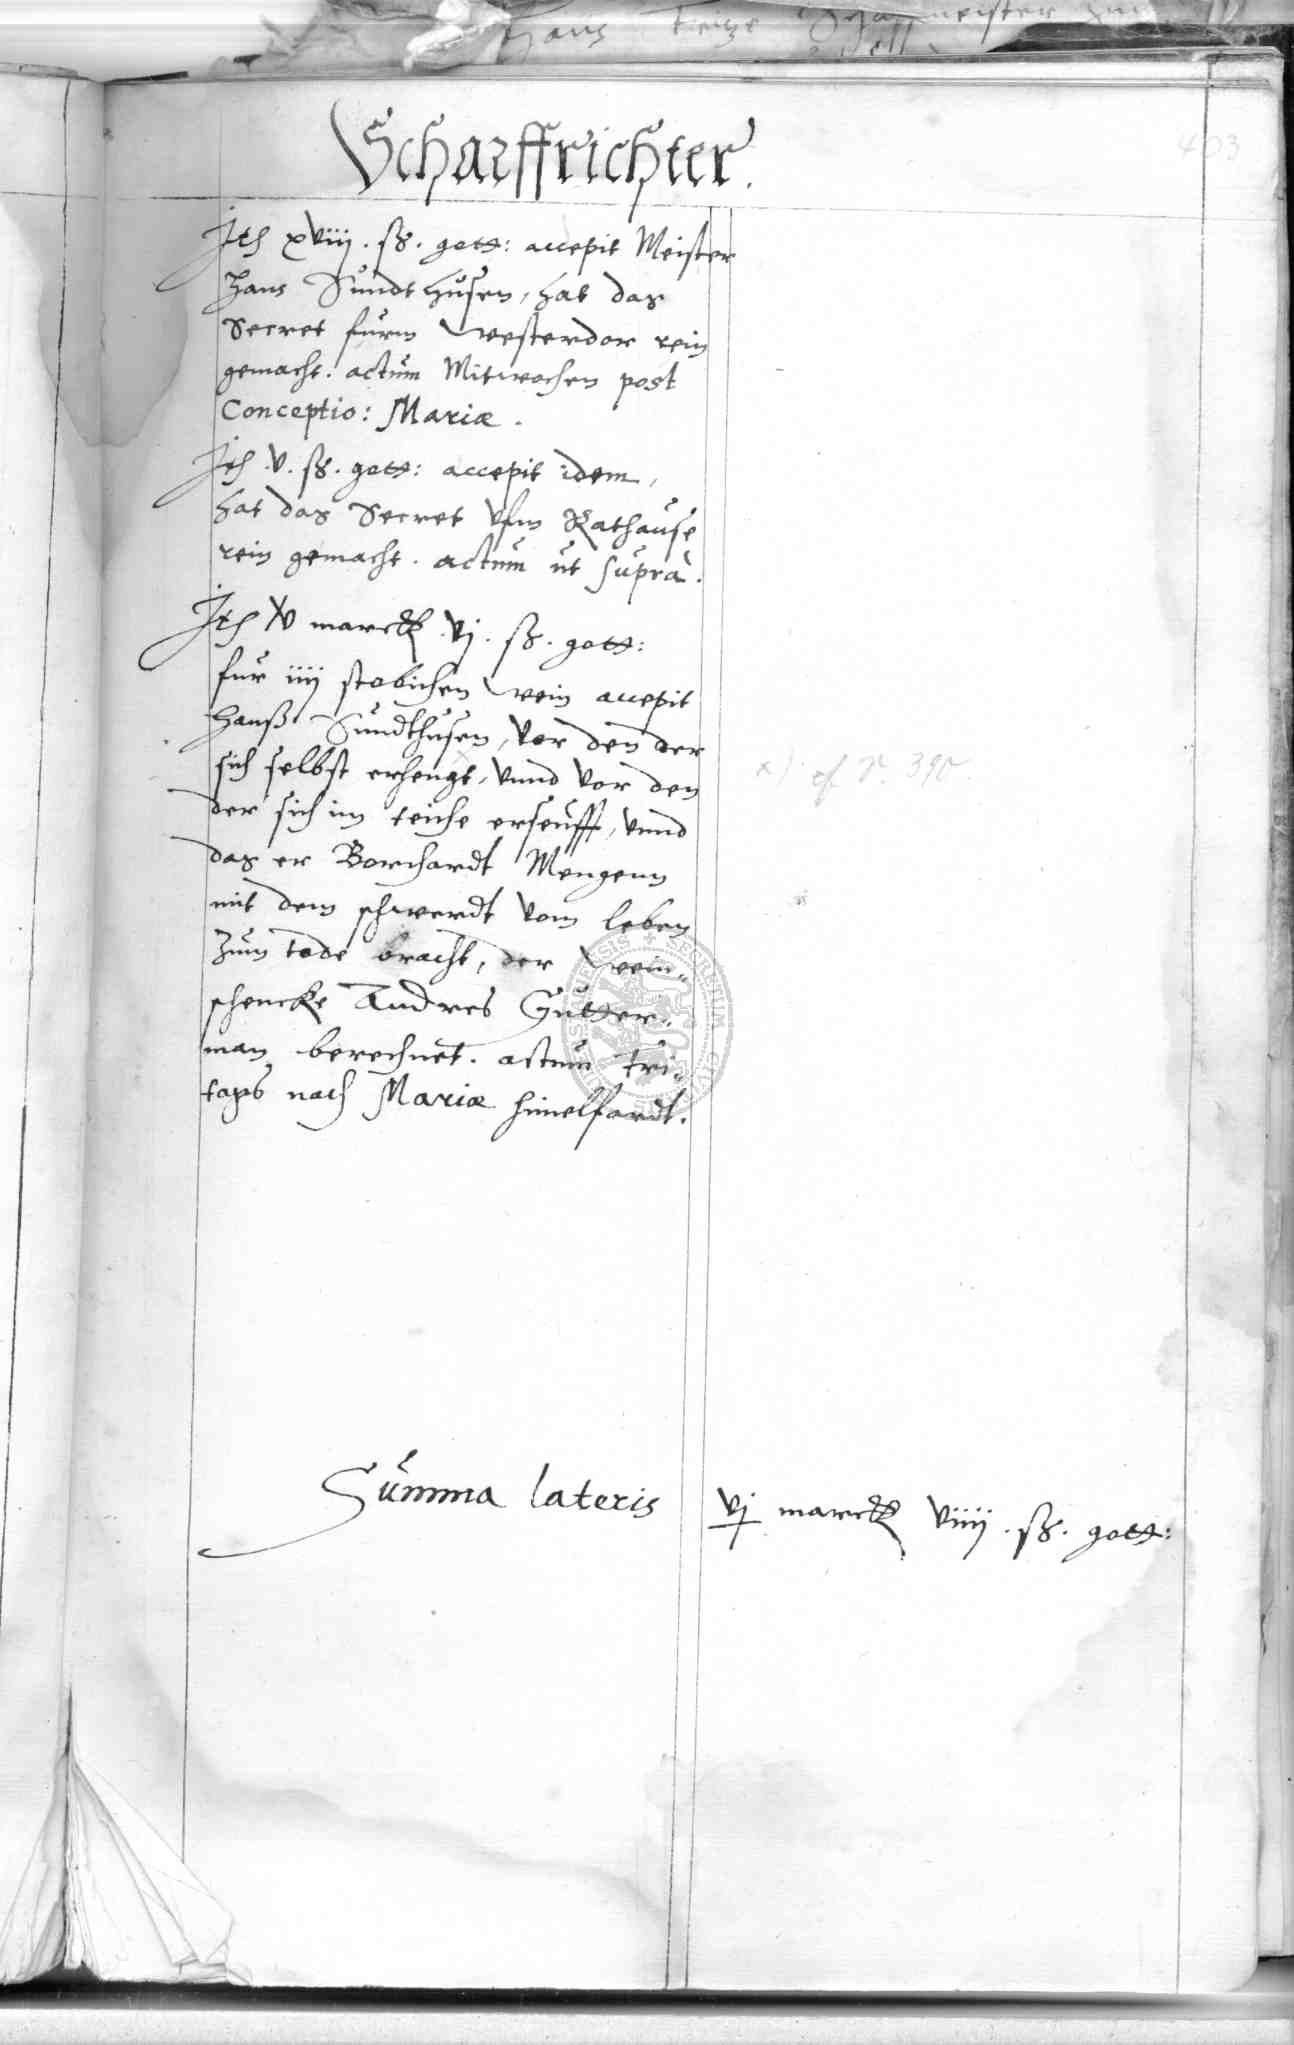 403
Scharffrichter.
Ite͂ xviiij. ß. gott: accepit Meister
Hans Sundthusen, hat das
Secret furm Westerdor rein
gemacht. actum Mitwochen post
Conceptio: Mariæ.
Ite͂ .v. ß. gott: accepit idem,
hat das Secret vfm Rathause
rein gemacht. actum ut suprà.
Ite͂ marckk .vj. ß. gott:
fur iiij stobichen wein accepit
Hanß Sundthusen, vor den der
sich selbst erhengt, vnnd vor den
x) cf
der sich im teiche erseufft, vnnd
das er Borchardt Mengenn
mit dem schwerdt vom leben
Zum tode bracht, der wein„
schencke Andres Gutter„
man berechnet. actum Fri„
tags nach Mariæ himelfardt.
Summa lateris vj marckk viiij. ß. gott: